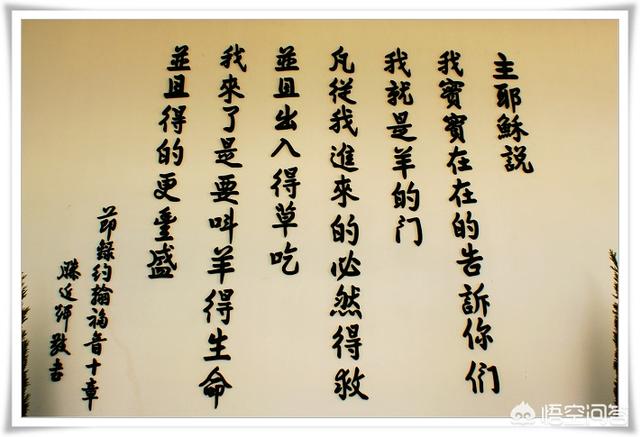 主耶穌說
我實實在在的告訴你们
我就是羊的门
凡從我進來的必然得救
並且出入得草吃
我來了是要叫羊得生命
並且得的更豐盛
節錄約翰福音十章
滕近輝敬書
悟空问答